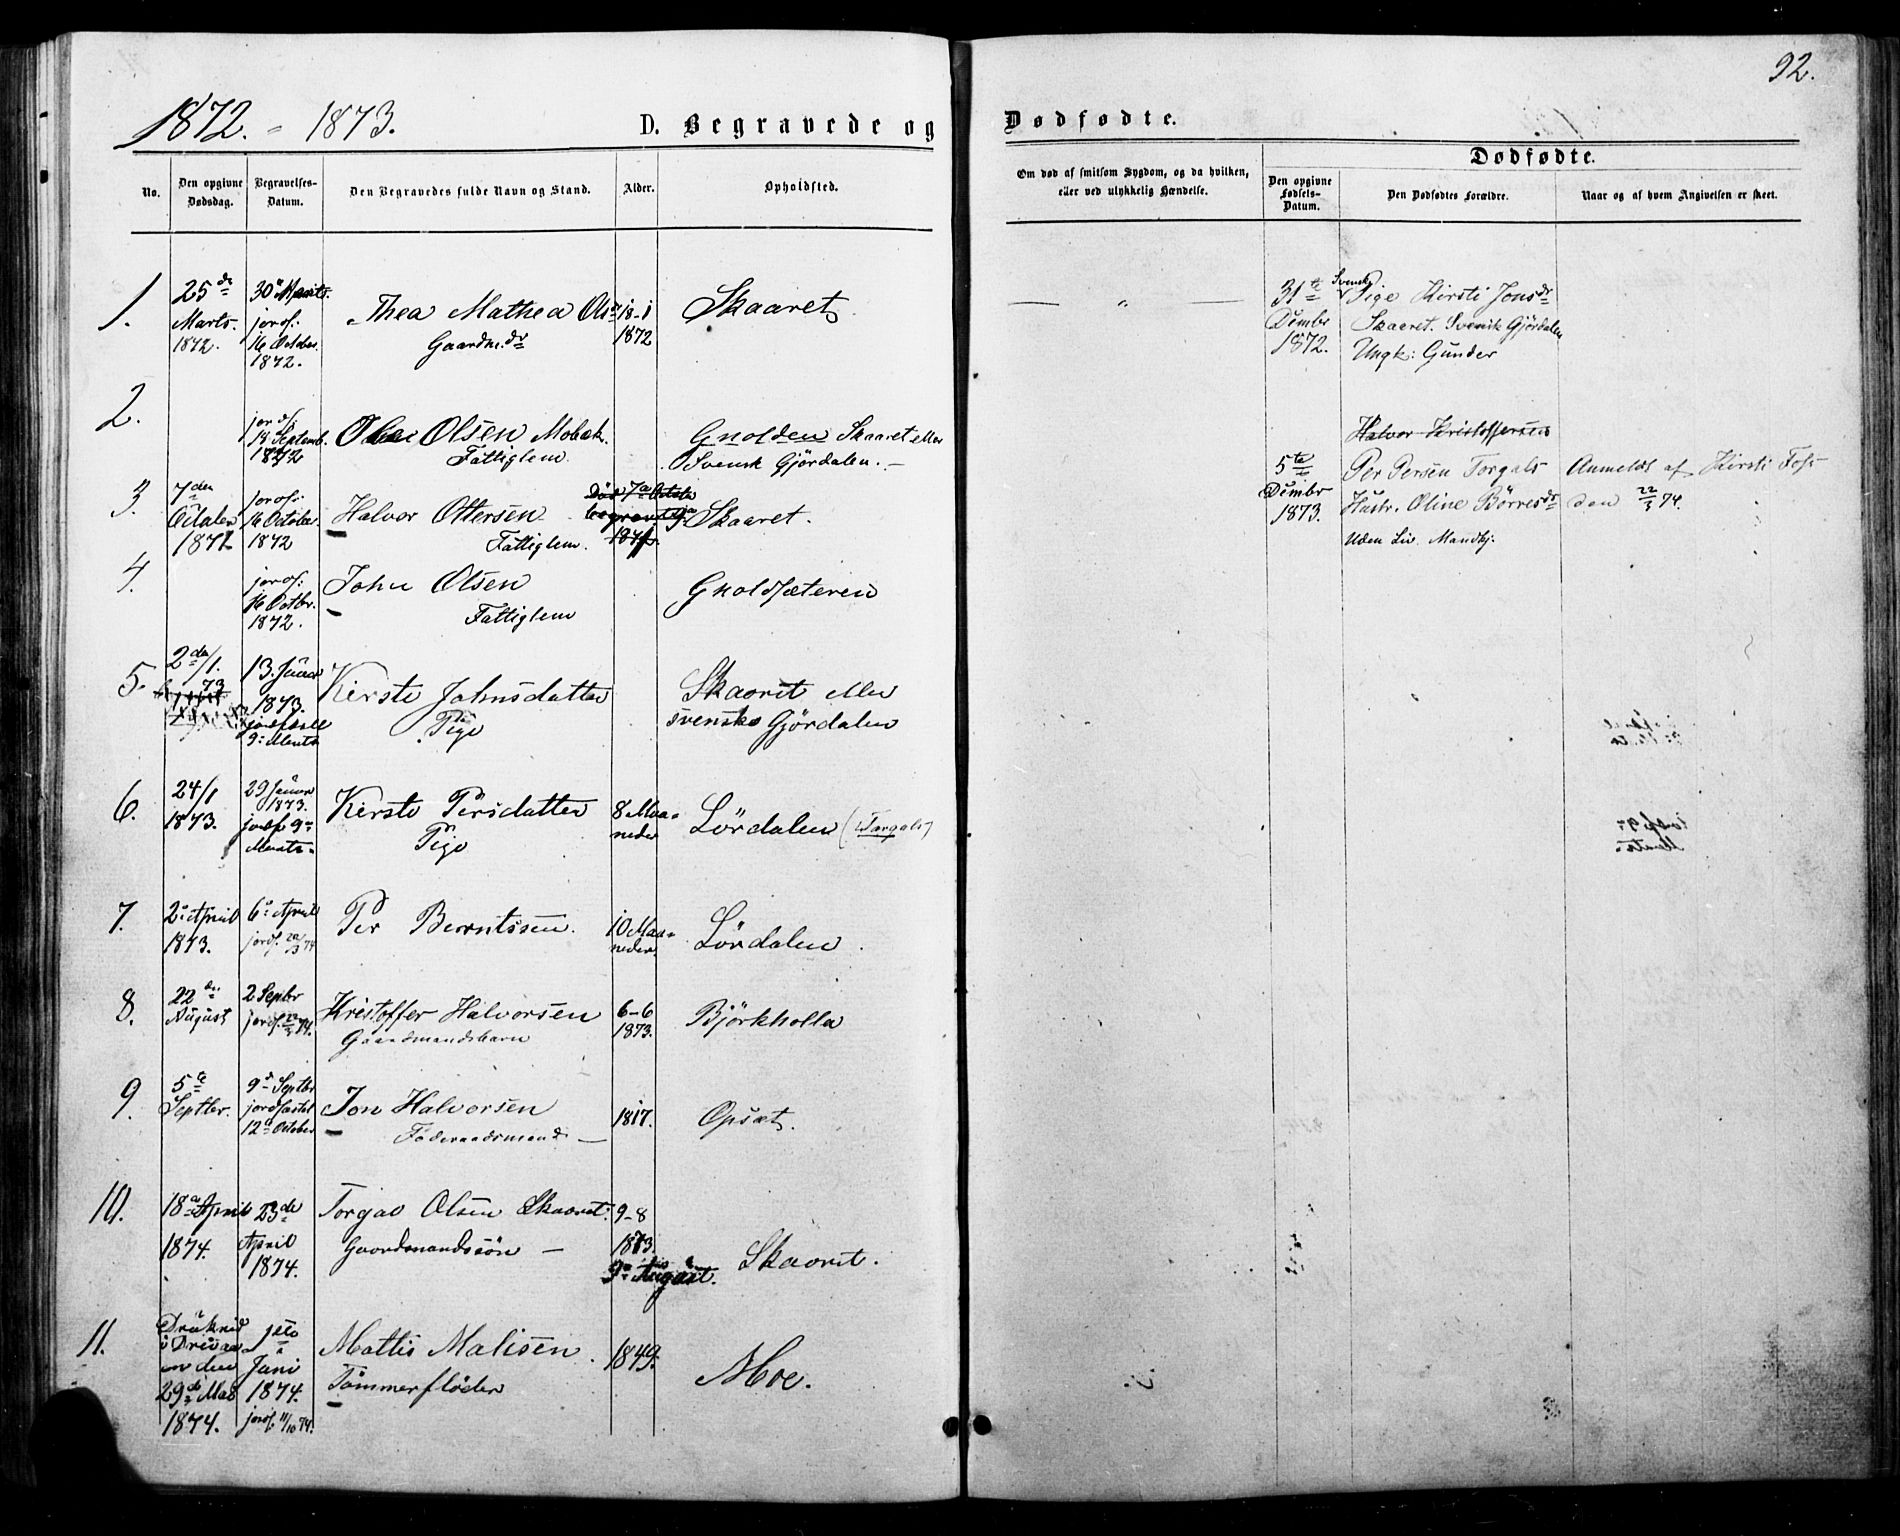 92.
1872. - 1873.
D. Begravede og
Dødfødte.
No.
Den opgivne Dødsdag.
Begravelses-Datum.
Den Begravedes fulde Navn og Stand.
Alder.
Opholdsted.
Om død af smitsom Sygdom, og da hvilken, eller ved ulykkelig Hændelse.
Dødfødte.
Den opgivne Fødsels-Datum.
Den Dødfødtes Forældre.
Naar og af hvem Angivelsen er skeet.
1.
25de
Marts
1872.
30 Marts
jordf:
16 October
1872.
Thea Mathea Olsdr
Gaardm. dr
18-1
1872
Skaaret
2.
jordf.
18 Septemb.
1872
Olsen Mobæk.
Fattiglem.
Gnolden Skaaret eller
Svensk Gjördalen. -
3.
7den
1872
jordf:
16 October
1872
Halvor Ottersen
Fattiglem.
Skaaret.
4.
jordf:
16 Octbr.
1872.
John Olsen
Fattiglem
Gnoldsæteren
5.
2den/1.
73
13. Januar
1873.
jordfæstet
9 Marts
Kirste Johnsdatter
Pige
Skaaret eller
svenske Gjördalen
6.
24/1
1873.
29 Januar
1873.
jordf 9
Marts
Kirste Persdatter
Pige
8 Maa-
neder
Lördalen (Torgals)
7.
2 April
1873.
6 April
jordf. 22/3 74
Per Berntssen.
10 Maa-
neder.
Lördalen.
8.
22de
August
2 Sepbr
jordf. 22/3 74.
Kristoffer Halvorsen
Gaardmandsbarn
6-6
1873.
Björkholla
9.
5te
Septbr.
9d Septbr
jordfæstet
12 October
Jon Halvorsen
Föderaadsmand -
1817.
Opsæt.
10.
18 April
1874.
23de
April
1874.
Torgal Olsen Skaaret.
Gaardmandssön -
9-8
1873.
9 August.
Skaaret.
11.
Druknid
i
den
29de Mai
1874.
1ste
Juni
1874.
jordf. 11/10 74.
Mattis Malisen.
Tömmerflöder
1849.
Moe.
31te
Dcmbr
1872.
Svensk
Pige Kirsti Jonsdr
Skaaret. Svensk Gjördalen
Ungk: Gunder
Halvor Kristoffersen
5te
Dcmbr
1873.
Per Persen Torgals
Hustr. Oline Börresdr
Uden Liv. Mandkj.
Anmeldt af Kirsti Foss
den 22/3 74.